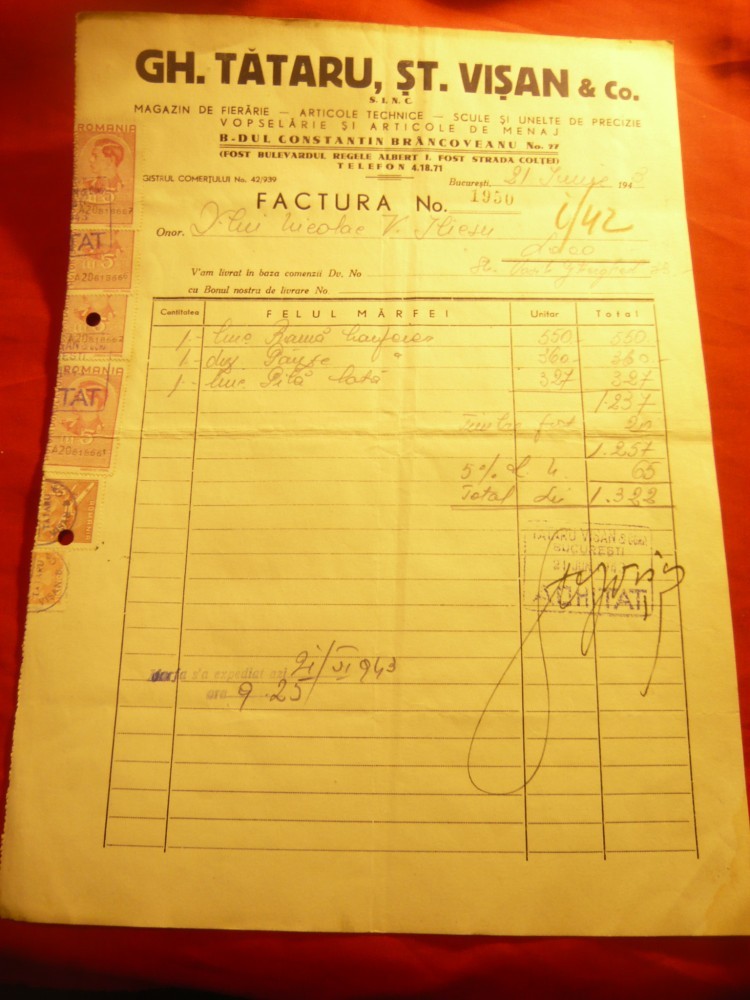 GH. TĂTARU, ȘT. VIȘAN & Co.
S. I. N. C.
MAGAZIN DE FIERĂRIE — ARTICOLE TECHNICE — SCULE ȘI UNELTE DE PRECIZIE
VOPSELĂRIE ȘI ARTICOLE DE MENAJ
B-DUL CONSTANTIN BRÂNCOVEANU No. 77
(FOST BULEVARDUL REGELE ALBERT I. FOST STRADA COLȚEI)
TELEFON 4.18.71
GISTRUL COMERȚULUI No. 42/939
București, 21 Iunie 1943
FACTURA No. 1950
Onor. D-lui Nicolae V. Iliescu
Loco
V'am livrat în baza comenzii Dv. No
cu Bonul nostru de livrare No.
Cantitatea FELUL MĂRFEI Unitar Total
1 - buc Ramă 550 - 550
1 - duz Pânze " 360 - 360
1 - buc Pilă lată 327 327
1.237
Timbru 20
1.257
5% 65
Total Lei 1.322
TĂTARU VIȘAN &
BUCUREȘTI
21 IUN
ACHITAT
Marfa s'a expediat azi 21/VI 943
ora 9.25
ROMANIA
5
TAT
5
ROMANIA
TAT
5
TATARU
VIȘAN
TATARU
VIȘAN